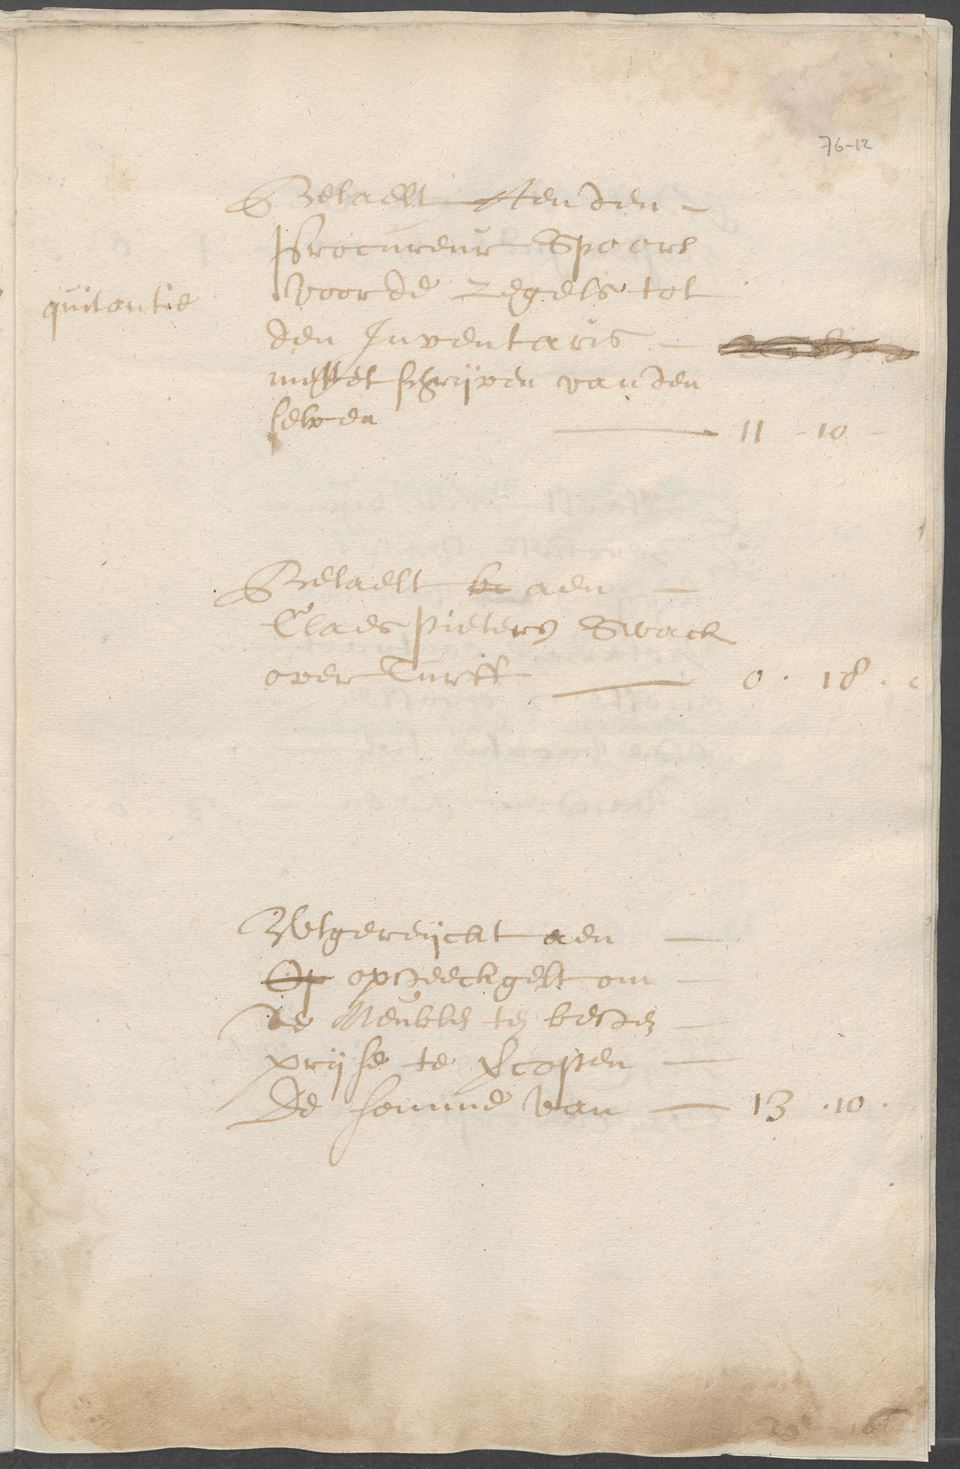 76-12
Betaelt Aen den -
Procureur Spoors
voor de Zegels tot
quitantie
den Inventaris -
mettet schrijven van den
selven 11 - 10 -
Betaelt aen -
Claes Pieters Swack
over Turff 0 · 18 ·
Wtgereijckt aen -
Op opsteeckgelt om -
de Meubles te bestez -
prijse te vcopen -
De somme van - 13 · 10 ·